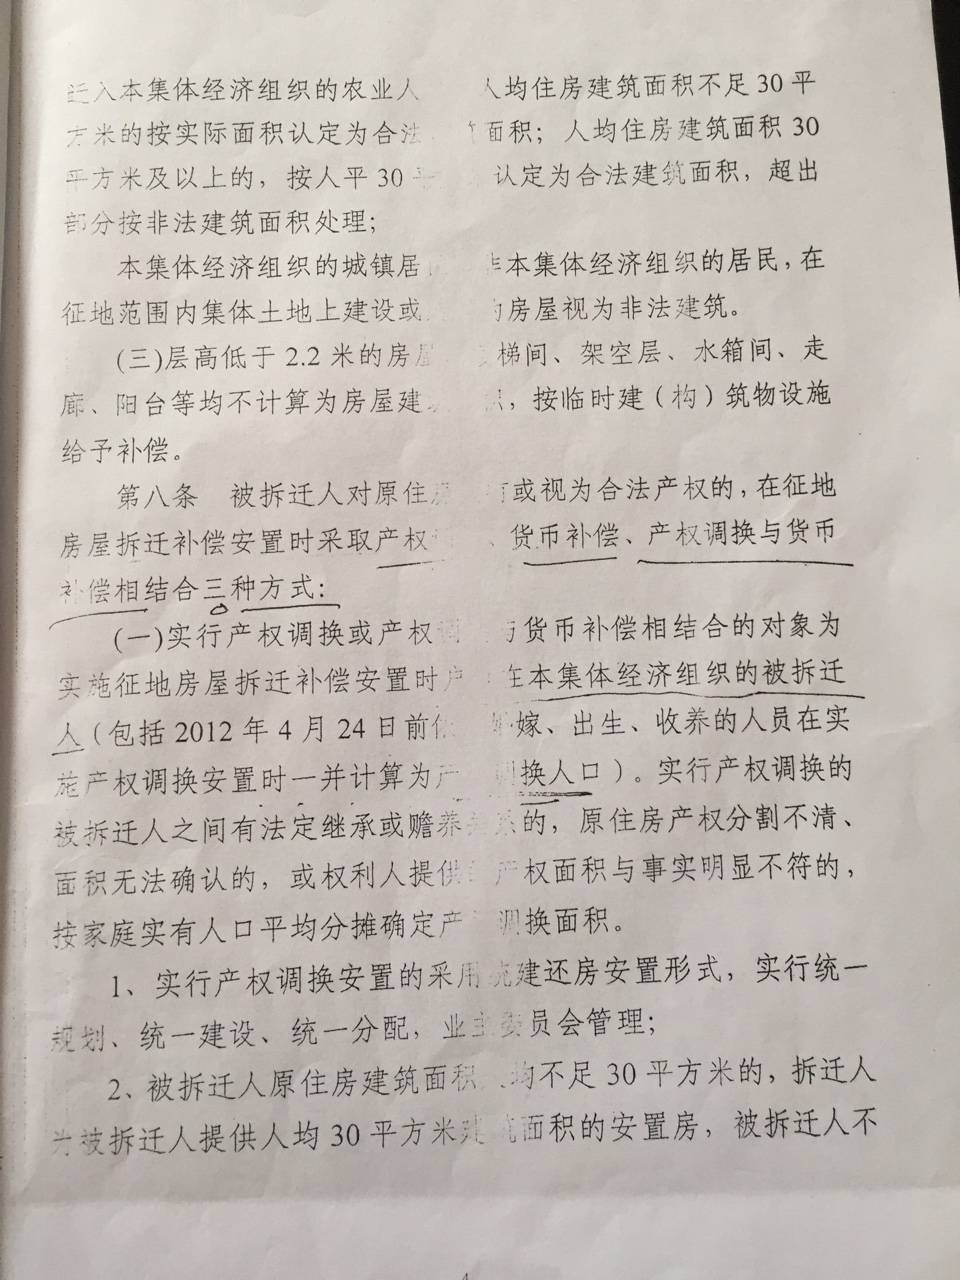 迁入本集体经济组织的农业人 人均住房建筑面积不足30平
方米的按实际面积认定为合法 面积；人均住房建筑面积30
平方米及以上的，按人平30平 认定为合法建筑面积，超出
部分按非法建筑面积处理；
本集体经济组织的城镇居 非本集体经济组织的居民，在
征地范围内集体土地上建设或 的房屋视为非法建筑。
(三)层高低于2.2米的房屋 梯间、架空层、水箱间、走
廊、阳台等均不计算为房屋建 ，按临时建（构）筑物设施
给予补偿。
第八条 被拆迁人对原住房 有或视为合法产权的，在征地
房屋拆迁补偿安置时采取产权 、货币补偿、产权调换与货币
补偿相结合三种方式：
(一)实行产权调换或产权调 与货币补偿相结合的对象为
实施征地房屋拆迁补偿安置时户 在本集体经济组织的被拆迁
人（包括2012年4月24日前依 婚嫁、出生、收养的人员在实
施产权调换安置时一并计算为产 调换人口）。实行产权调换的
被拆迁人之间有法定继承或赡养关系的，原住房产权分割不清、
面积无法确认的，或权利人提供的产权面积与事实明显不符的，
按家庭实有人口平均分摊确定产 调换面积。
1、实行产权调换安置的采用统建还房安置形式，实行统一
规划、统一建设、统一分配，业主委员会管理；
2、被拆迁人原住房建筑面积人均不足30平方米的，拆迁人
为被拆迁人提供人均30平方米建筑面积的安置房，被拆迁人不